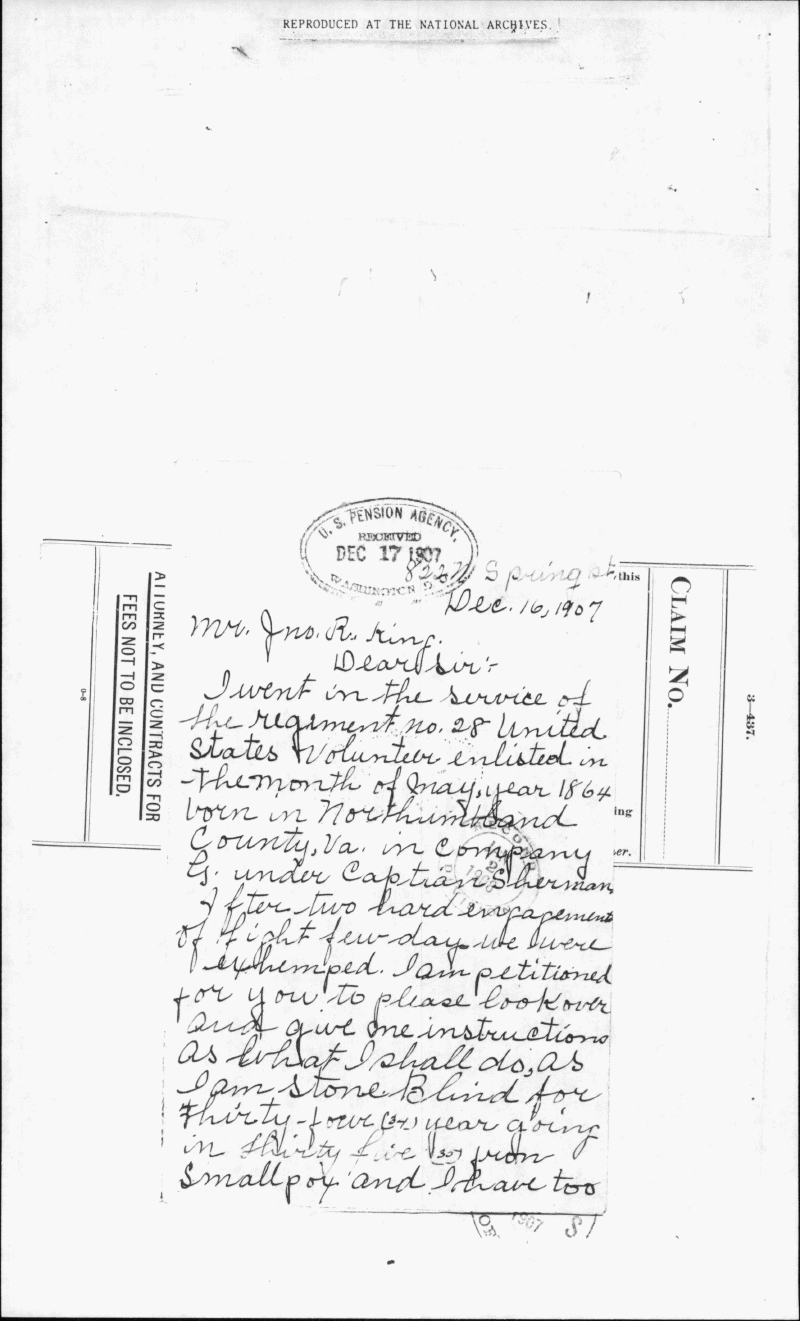 REPRODUCED AT THE NATIONAL ARCHIVES.
U. S. PENSION AGENCY,
RECEIVED
DEC 17 1907
WASHINGTON D
Spring st
Dec. 16, 1907
Mr. Jno. R. King.
Dear Sir:-
I went in the service of
the regiment no. 28 United
States Volunteer enlisted in
the month of May, year 1864
born in Northumbland
County, Va. in company
G. under Captian Sherman,
After two hard engagement
of fight few day we were
exhemped. I am petitioned
for you to please look over
and give me instructions
as what I shall do, as
I am stone Blind for
thirty-four (34) year going
in thirty five (35) from
Smallpox and I have too
ATTORNEY, AND CONTRACTS FOR
FEES NOT TO BE INCLOSED.
0-8
this
ing
er.
CLAIM NO.
3-437.
1907
OF
S